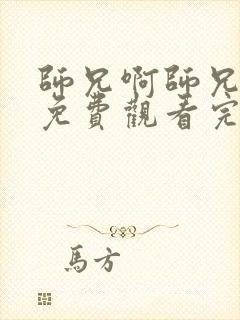 師兄啊師兄
免費觀看完
馬方